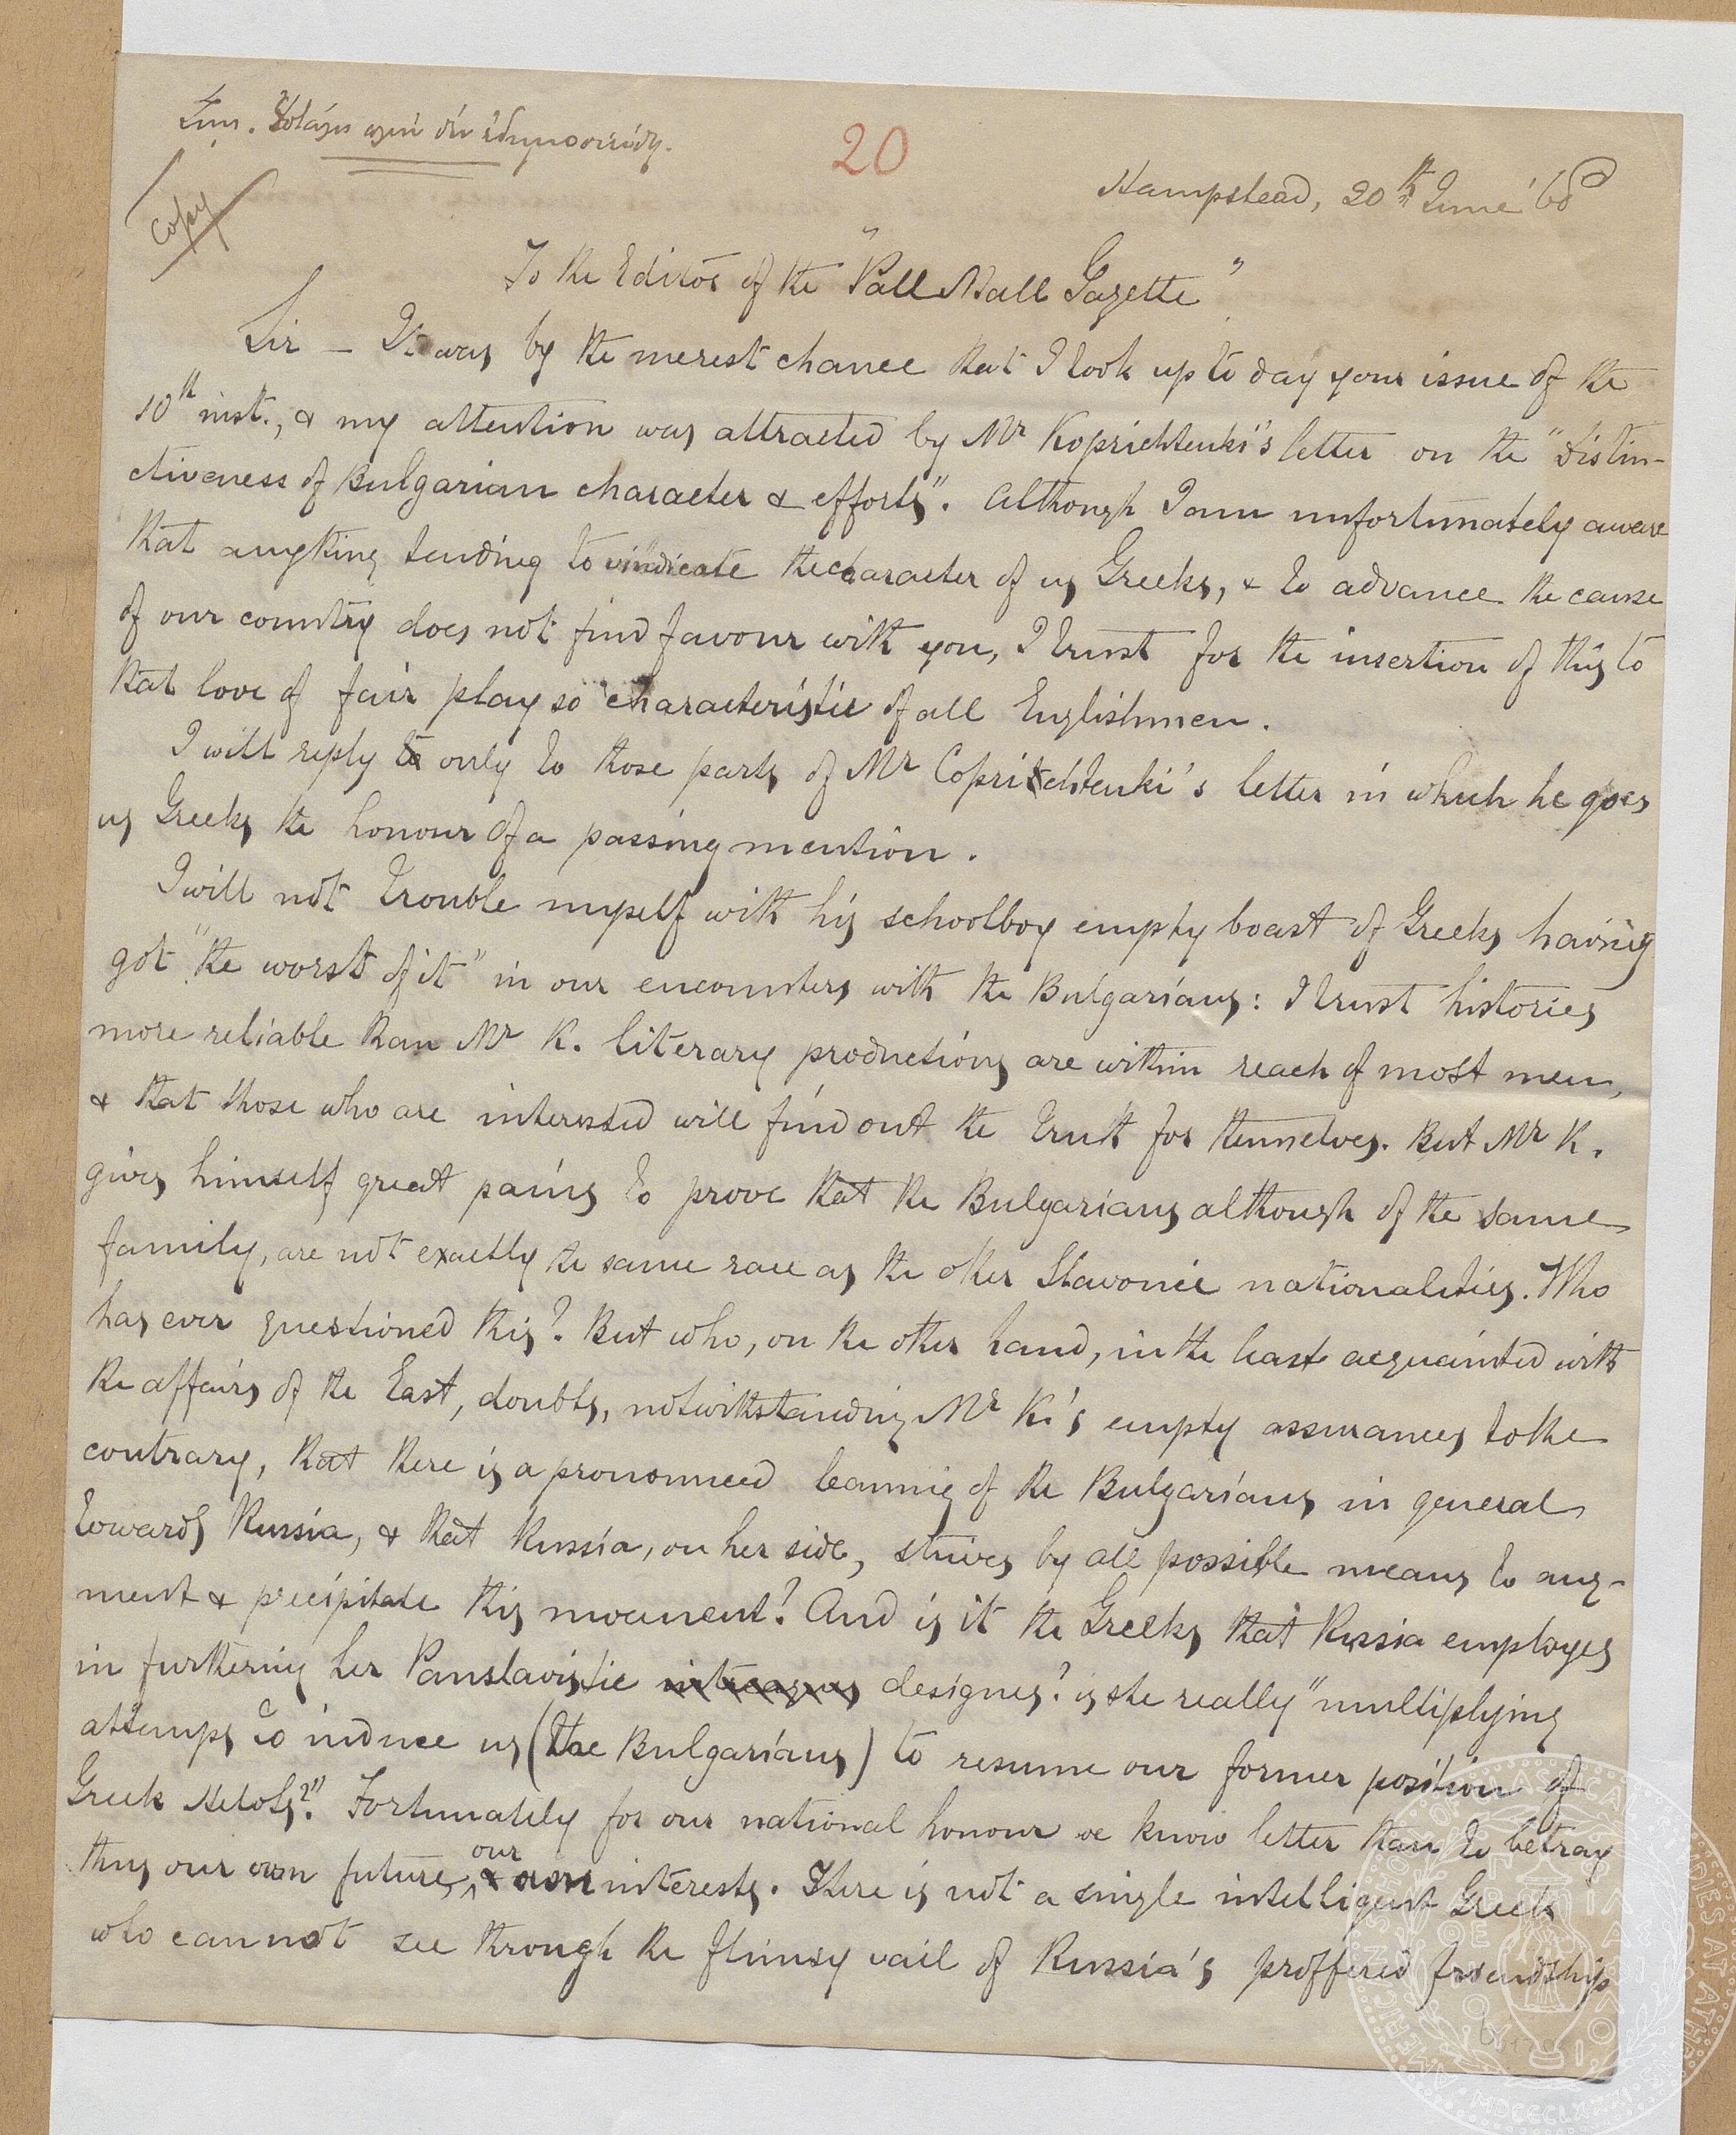 Σημ. ἐστάλη ἀλλὰ δὲν ἐδημοσιεύθη.
20
Copy
Hampstead, 20th June '68
To the Editor of the "Pall Mall Gazette"
Sir — It was by the merest chance that I took up to day your issue of the
10th inst., & my attention was attracted by Mr Koprichtenki's letter on the "distin-
ctiveness of Bulgarian character & efforts". Although I am unfortunately aware
that anything tending to vindicate the character of us Greeks, & to advance the cause
of our country does not find favour with you, I trust for the insertion of this to
that love of fair play so characteristic of all Englishmen.
I will reply to only to those parts of Mr Coprichtenki's letter in which he goes
us Greeks the honour of a passing mention.
I will not trouble myself with his schoolboy empty boast of Greeks having
got "the worst of it" in our encounters with the Bulgarians: I trust histories
more reliable than Mr K. literary productions are within reach of most men,
& that those who are interested will find out the truth for themselves. But Mr K.
gives himself great pains to prove that the Bulgarians although of the same
family, are not exactly the same race as the other Slavonic nationalities. Who
has ever questioned this? But who, on the other hand, in the least acquainted with
the affairs of the East, doubts, notwithstanding Mr K.'s empty assurances to the
contrary, that there is a pronounced leaning of the Bulgarians in general
towards Russia, & that Russia, on her side, strives by all possible means to aug-
ment & precipitate this movement? And is it the Greeks that Russia employes
in furthering her Panslavistic intreagues designes? is she really "multiplying
attemps to induce us (the Bulgarians) to resume our former position of
Greek Helots?" Fortunately for our national honour we know better than to betray
thus our own future, & our own interests. There is not a single intelligent Greek
who cannot see through the flimsy vail of Russia's proffered friendship